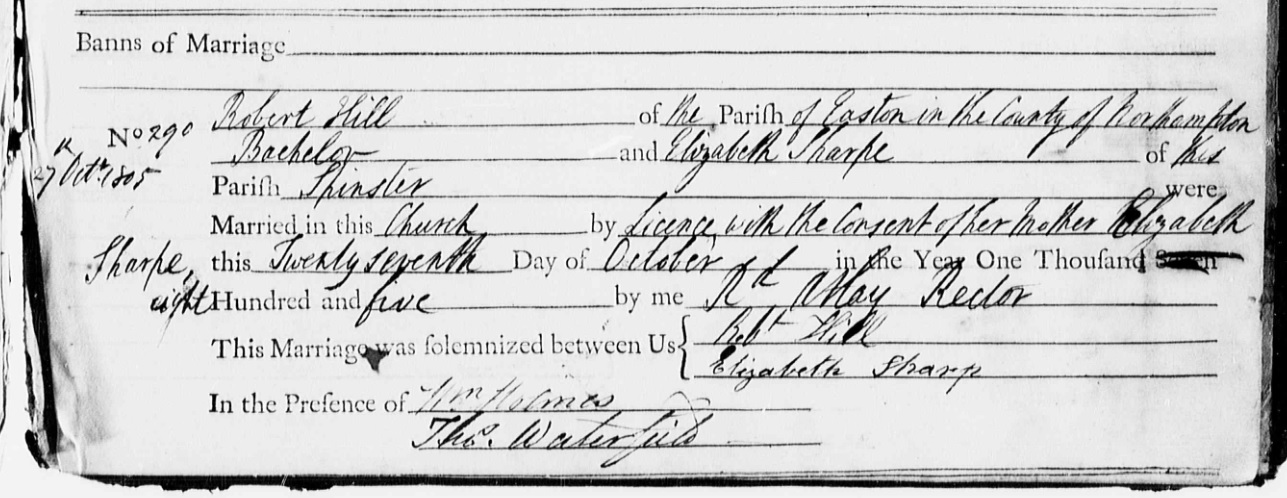 Banns of Marriage
No 290 Robert Hill of the Pariſh of Easton in the County of Northampton
27th Octr. 1805 Bachelor and Elizabeth Sharpe of this
Pariſh Spinster were
Married in this Church by Licence with the Consent of her Mother Elizabeth
Sharpe, this Twenty seventh Day of October in the Year One Thouſand Seven
eight Hundred and five by me Rd. May Rector
This Marriage was ſolemnized between Us { Robt Hill
Elizabeth Sharp
In the Preſence of Wm Holmes
Thos. Waterfield